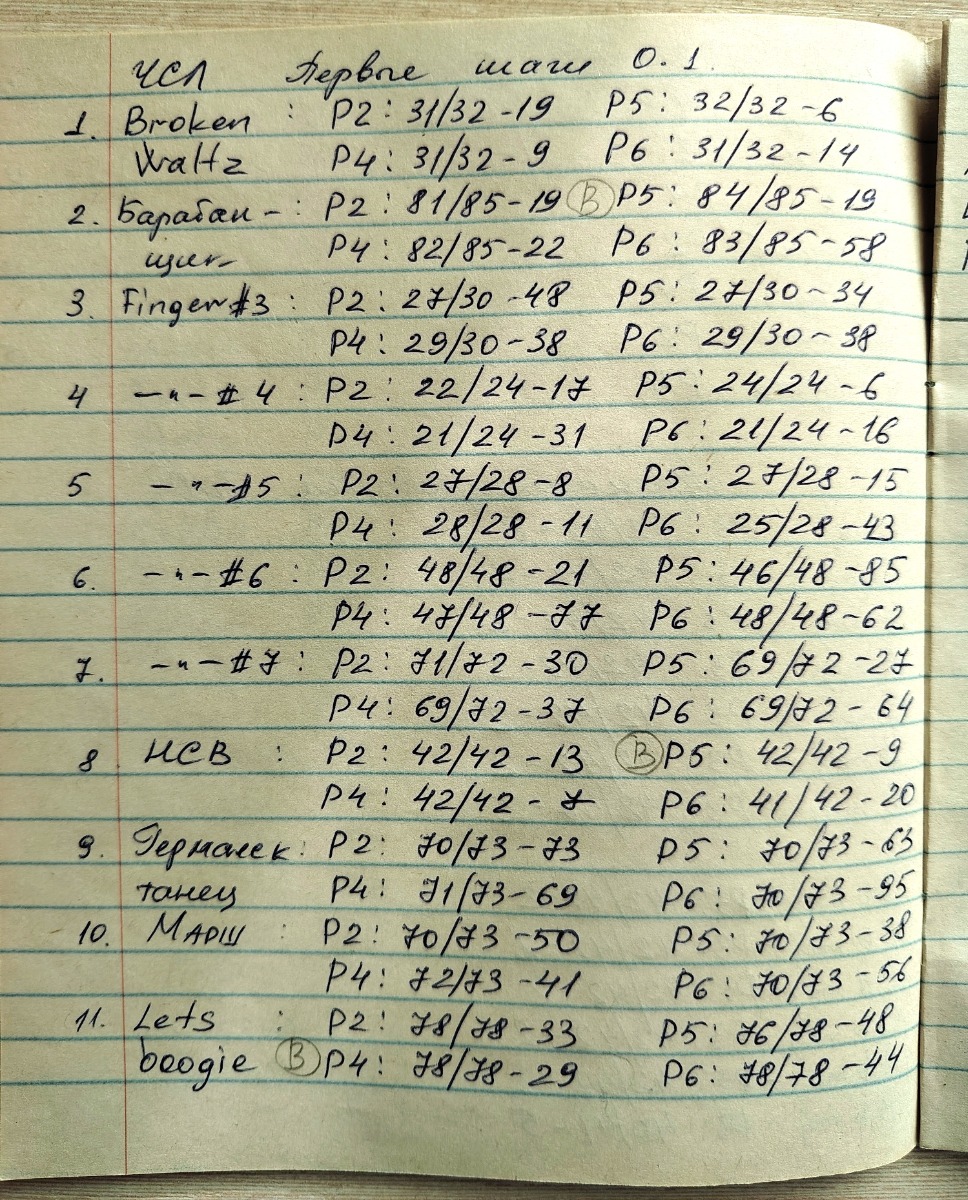 ЧСЛ Первые шаги О.1.
1. Broken : P2: 31/32-19 P5: 32/32-6
Waltz P4: 31/32-9 P6: 31/32-14
2. Барабан-: P2: 81/85-19 (B) P5: 84/85-19
щик P4: 82/85-22 P6: 83/85-58
3. Finger#3: P2: 27/30-48 P5: 27/30-34
P4: 29/30-38 P6: 29/30-38
4 -"-#4: P2: 22/24-17 P5: 24/24-6
P4: 21/24-31 P6: 21/24-16
5 -"-#5: P2: 27/28-8 P5: 27/28-15
P4: 28/28-11 P6: 25/28-43
6. -"-#6: P2: 48/48-21 P5: 46/48-85
P4: 47/48-77 P6: 48/48-62
7. -"-#7: P2: 71/72-30 P5: 69/72-27
P4: 69/72-37 P6: 69/72-64
8 НСВ : P2: 42/42-13 (B) P5: 42/42-9
P4: 42/42-7 P6: 41/42-20
9. Германск: P2: 70/73-73 P5: 70/73-63
танец P4: 71/73-69 P6: 70/73-95
10. Марш : P2: 70/73-50 P5: 70/73-38
P4: 72/73-41 P6: 70/73-56
11. Lets : P2: 78/78-33 P5: 76/78-48
boogie (B) P4: 78/78-29 P6: 78/78-44